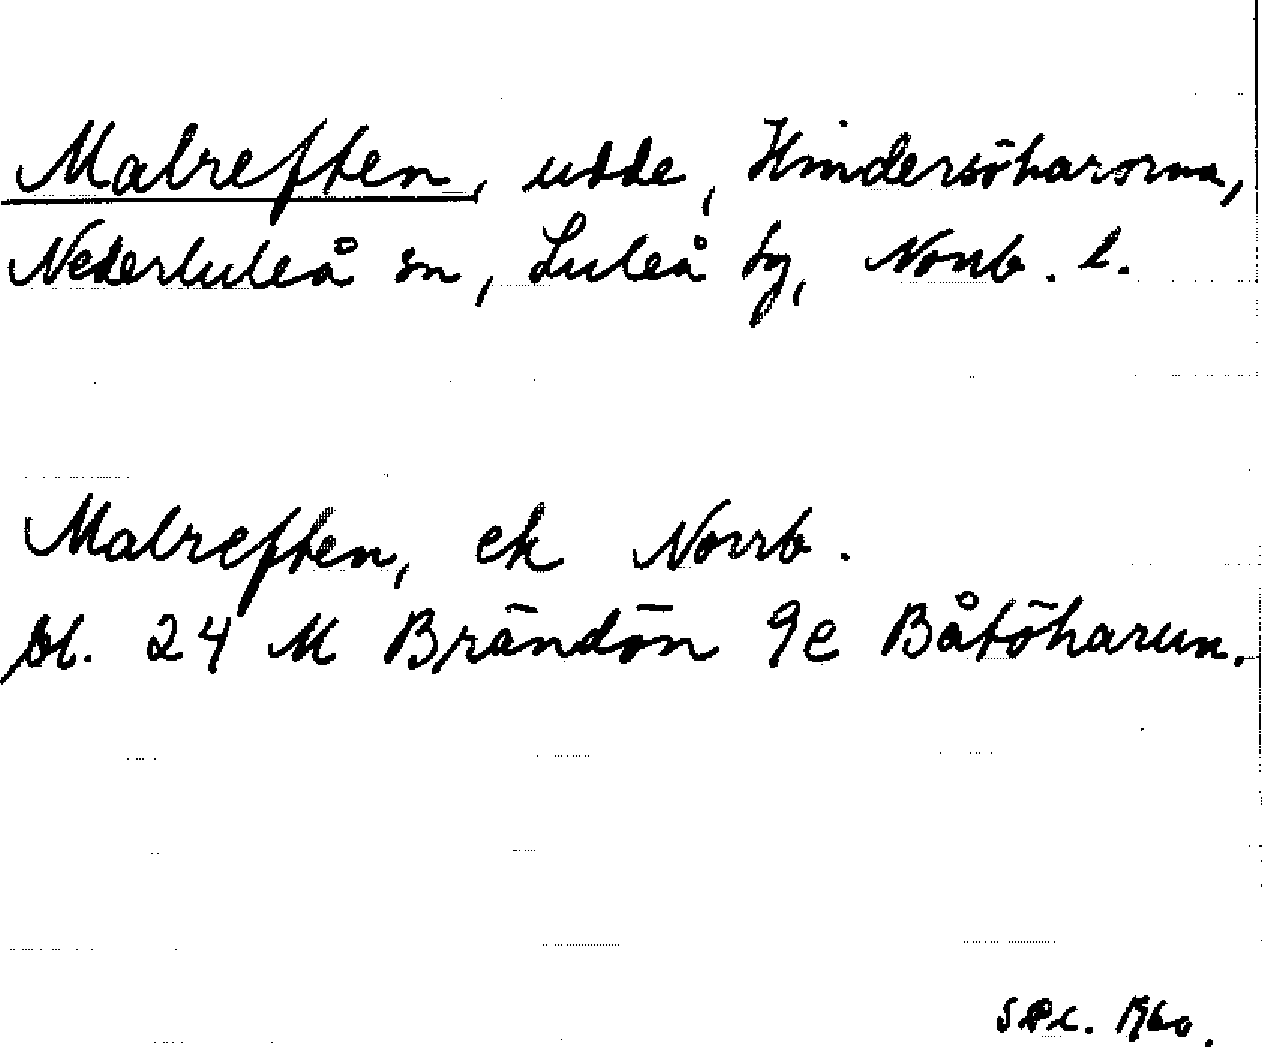 Malreften, udde, Hindersöharorna,
Nederluleå sn, Luleå tg, Norrb. l.
Malreften, ek Norrb.
bl. 24 M Brändön 9e Båtöharun.
1960.